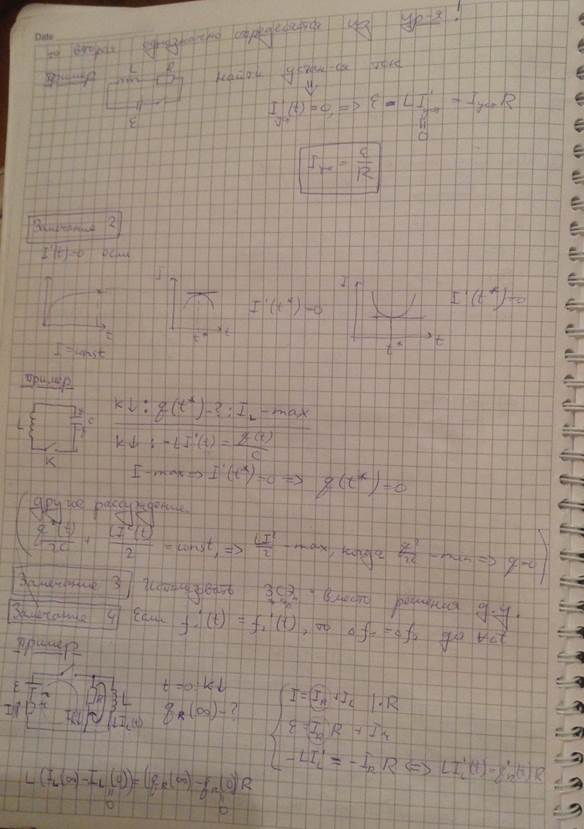 Date
то вторая однозначно определяется из ур-я!
Пример L R найти устан-ся ток
ε
I'уст(t) = 0, => ε = LI'уст - Iуст R
0
Iуст = ε/R
Замечание 2
I'(t)=0 если
I I'(t*)=0 I I'(t*)=0
t t* t t* t
I=const
Пример
K↓: q(t*)-?: I_L - max
L C K
K↓: -LI'(t) = q(t)/C
I-max => I'(t*)=0 => q(t*)=0
другое рассуждение
q²(t)/2C + LI²(t)/2 = const, => LI²/2 - max, когда q²/2C - min => q=0
Замечание 3 Использовать ЗСЭ вместо решения д.у.
Замечание 4 Если f₁'(t) = f₂'(t), то Δf₁=Δf₂ за ∀Δt
Пример
ε r R L t=0: K↓
I I_L(t) q_R(∞)-?
I = I_R + I_L | · R
ε = I_R R + Ir
-LI_L' = -I_R R <=> LI_L'(t) = q_R'(t) R
L(I_L(∞)-I_L(0)) = (q_R(∞)-q_R(0))R
0 0